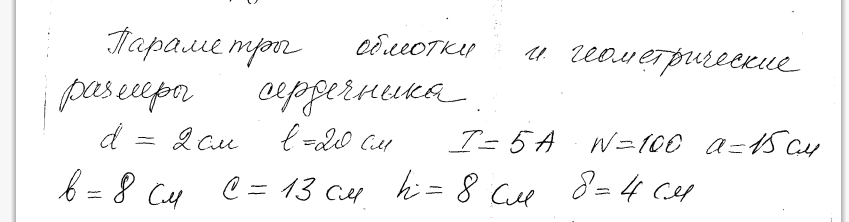 Параметры обмотки и геометрические
размеры сердечника.
d = 2 см l=20 см I=5А W=100 a=15 см
b=8 см c=13 см h=8 см δ=4 см